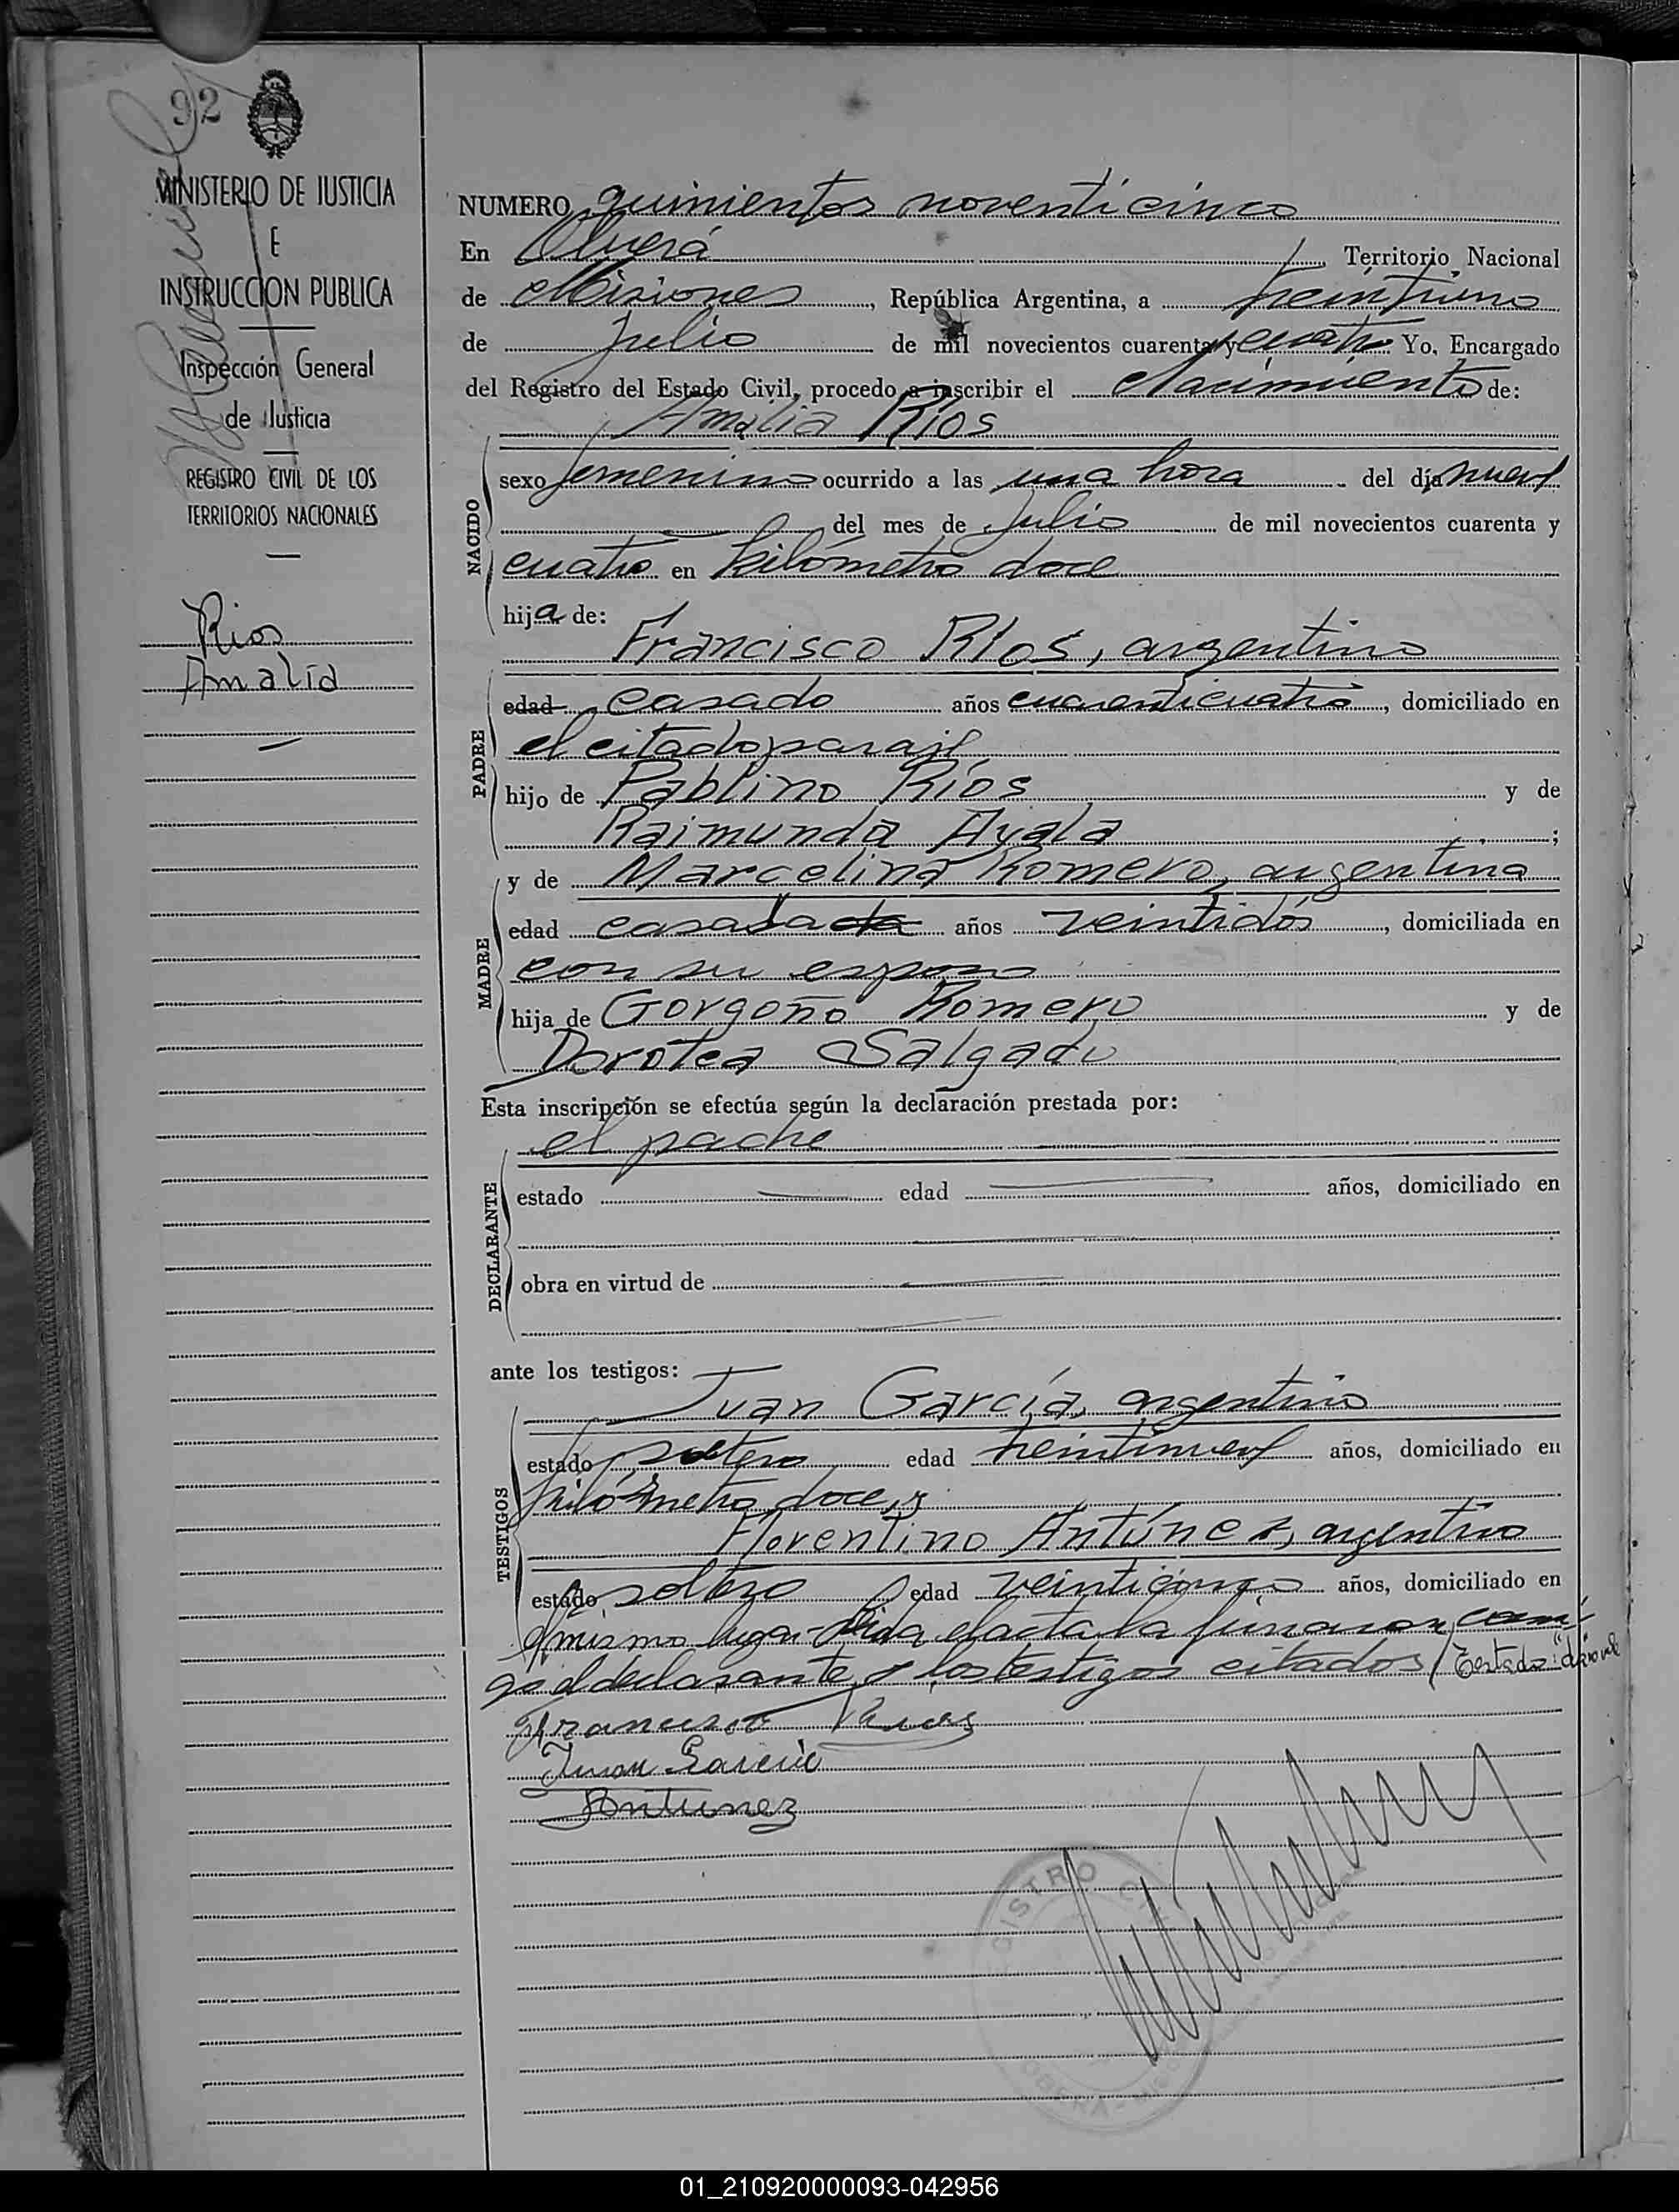 92
MINISTERIO DE JUSTICIA
E
INSTRUCCION PUBLICA
Inspección General
de Justicia
REGISTRO CIVIL DE LOS
TERRITORIOS NACIONALES
Rios
Amalia
NUMERO quinientos noventicinco
En Oberá, Territorio Nacional
de Misiones, República Argentina, a treintiuno
de Julio de mil novecientos cuarenta y cuatro Yo, Encargado
del Registro del Estado Civil, procedo a inscribir el Nacimiento de:
Amalia Ríos
NACIDO
sexo femenino ocurrido a las una hora del día nueve
del mes de Julio de mil novecientos cuarenta y
cuatro en kilómetro doce
hija de:
Francisco Ríos, argentino
PADRE
edad casado años cuarenticuatro, domiciliado en
el citado paraje
hijo de Pablino Ríos y de
Raimunda Ayala;
y de Marcelina Romero, argentina
MADRE
edad casada años veintidós, domiciliada en
con su esposo
hija de Gorgoño Romero y de
Dorotea Salgado
Esta inscripción se efectúa según la declaración prestada por:
el padre
DECLARANTE
estado edad años, domiciliado en
obra en virtud de
ante los testigos:
Juan García, argentino
TESTIGOS
estado soltero edad treintinueve años, domiciliado en
kilómetro doce, y
Florentino Antúnez, argentino
estado soltero edad veinticinco años, domiciliado en
el mismo lugar. Leida el acta la firmaron conmi-
go el declarante y los testigos citados/
Francisco Rios
Juan Garcia
Antunez
REGISTRO
01_210920000093-042956